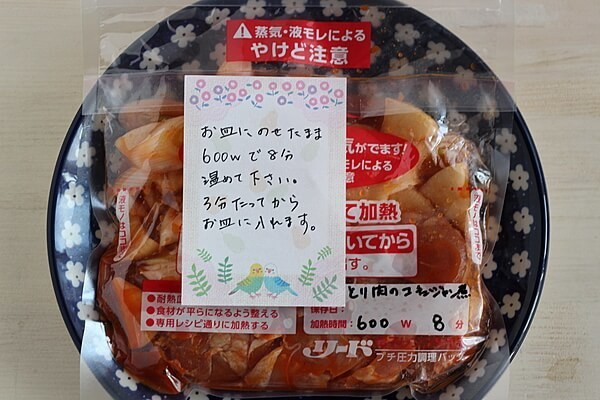 蒸気・液モレによる
やけど注意
お皿にのせたまま
600wで8分
温めて下さい。
3分たってから
お皿に入れます。
気がでます!
モレによる
意
て加熱
いてから
す。
●耐熱
●食材が平らになるよう整える
●専用レシピ通りに加熱する
とり肉のコチュジャン煮
保存日:
加熱時間:600 W 8分
リード
プチ圧力調理バッグ